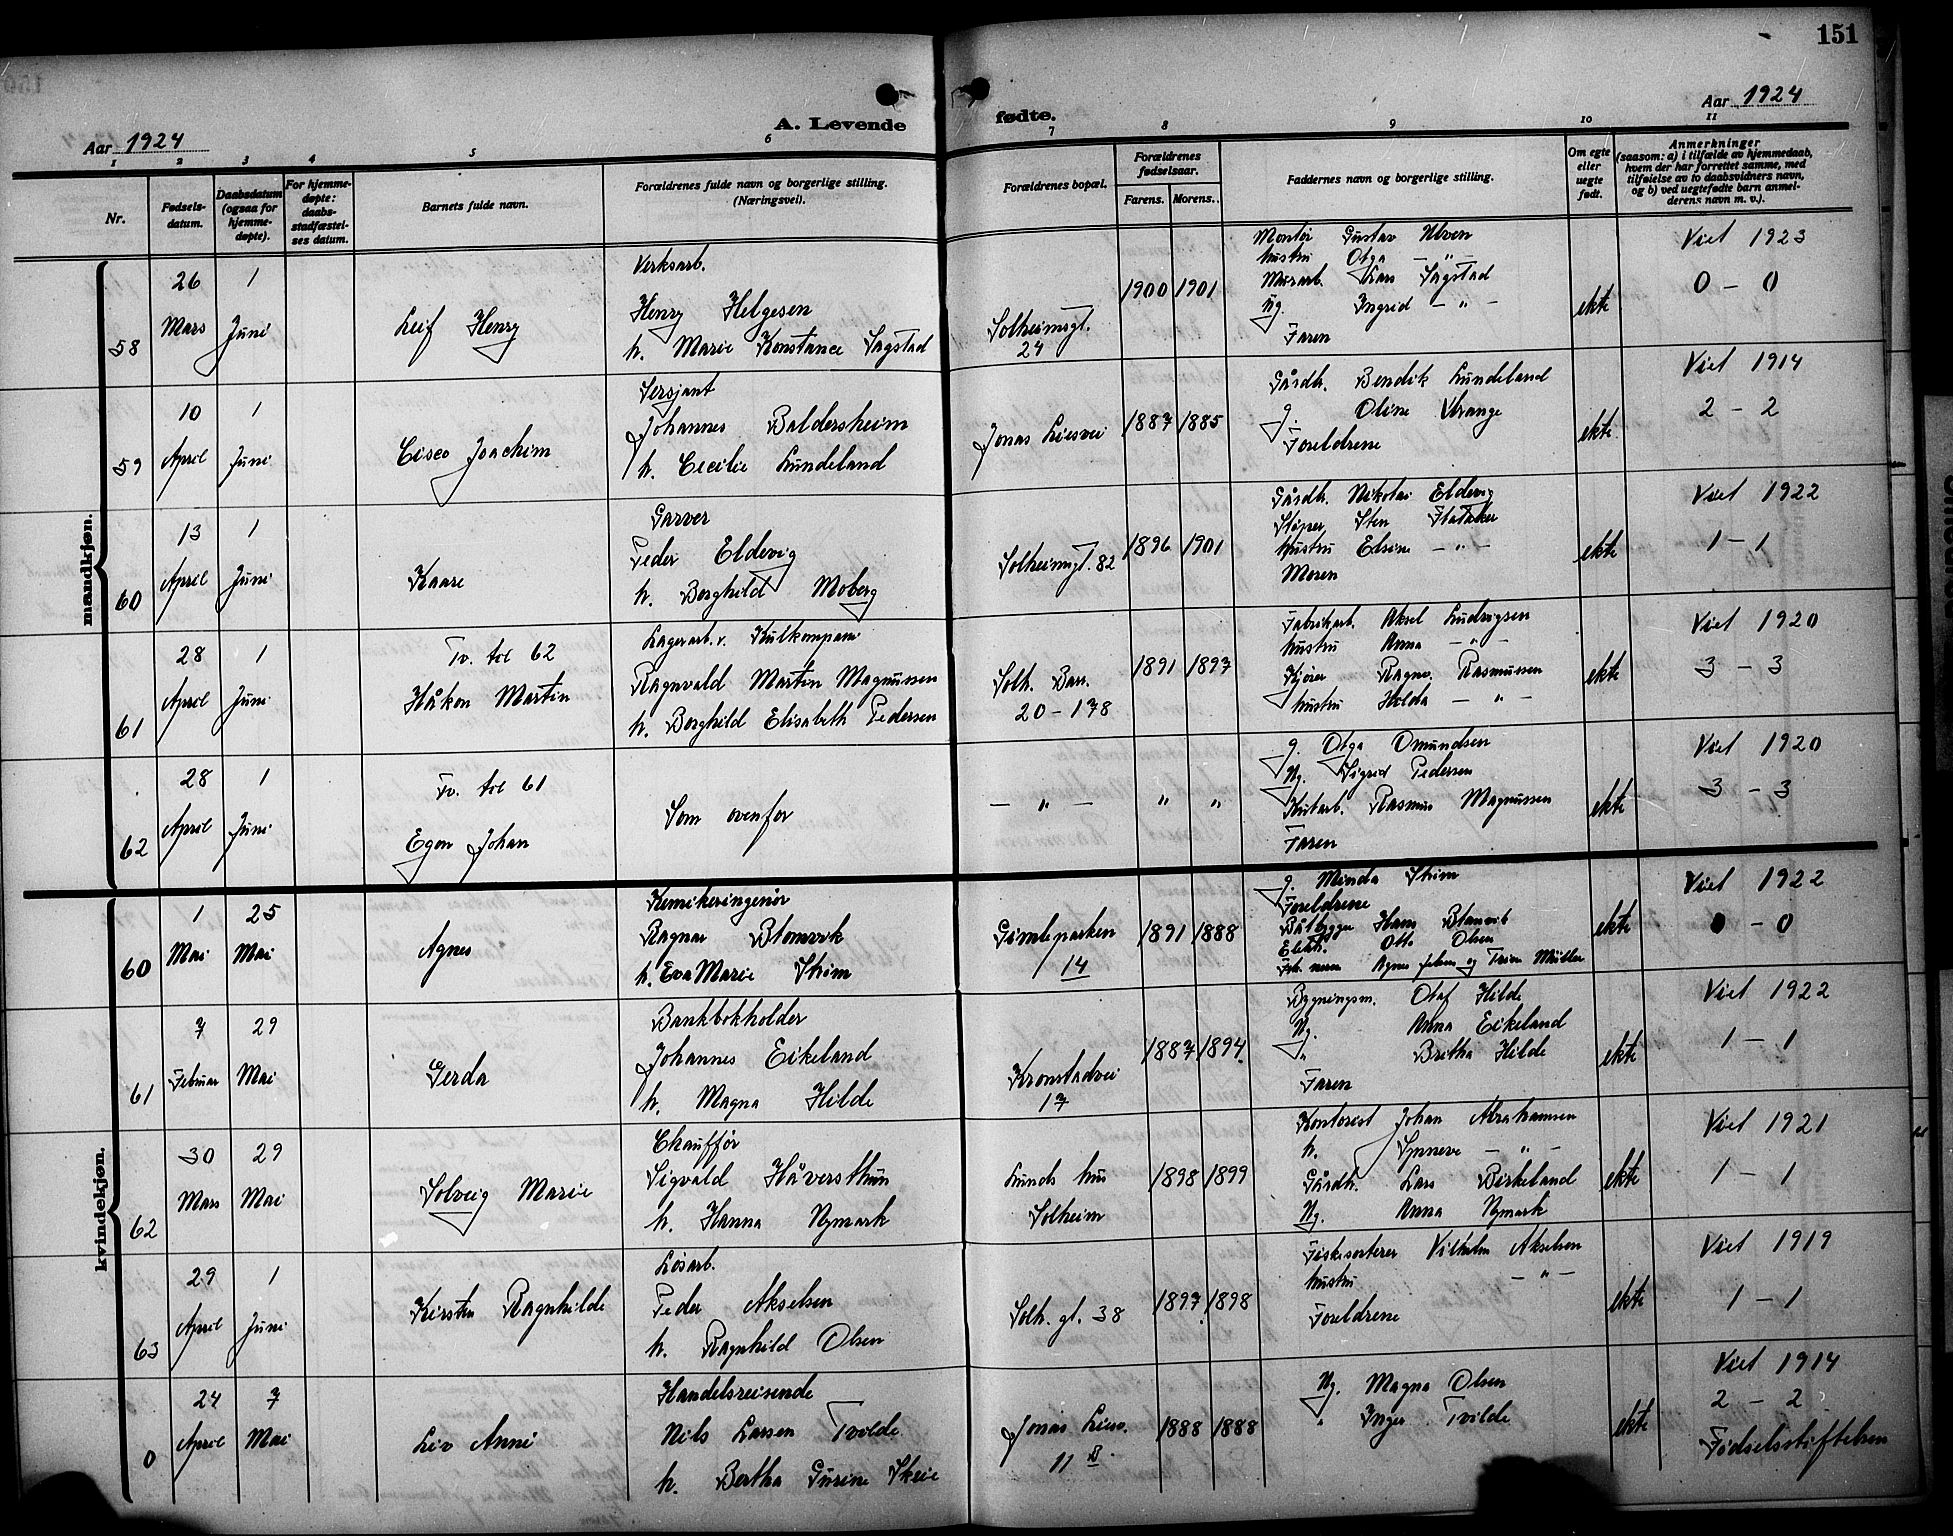 151
Aar 1924
A. Levende
fødte.
Aar 1924
1 2 3 4 5 6 7 8 9 10 11
Nr.
Fødsels-
datum.
Daabsdatum
(ogsaa for
hjemme-
døpte).
For hjemme-
døpte:
daabs-
stadfæstel-
ses datum.
Barnets fulde navn.
Forældrenes fulde navn og borgerlige stilling.
(Næringsvei).
Forældrenes bopæl.
Forældrenes
fødselsaar.
Farens. Morens.
Faddernes navn og borgerlige stilling.
Om egte
eller
uegte
født.
Anmerkninger
(saasom: a) i tilfælde av hjemmedaab,
hvem der har forrettet samme, med
tilføielse av to daabsvidners navn,
og b) ved uegtefødte barn anmel-
derens navn m. v.).
mandkjøn.
58
26
Mars
1
Juni
Leif Henry
Verksarb.
Henry Helgesen
h. Marie Konstance Sagstad
Solheimsgt.
24
1900 1901
Montør Gustav Ulven
hustru Olga — " —
Murarb. Lars Sagstad
Ug. Ingrid — " —
Faren
ekte
Viet 1923
0 — 0
59
10
April
1
Juni
Cisco Joachim
Sersjant
Johannes Baldersheim
h. Cecilie Lundeland
Jonas Liesvei
1887 1885
Gårdb. Bendik Lundeland
g. Oline Vrange
Foreldrene
ekte
Viet 1914
2 — 2
60
13
April
1
Juni
Kaare
Garver
Peder Eldevig
h. Borghild Moberg
Solheimgt. 82
1896 1901
Gårdb. Nikolai Eldevig
Støper Sten Flatåker
hustru Elsine — " —
Moren
ekte
Viet 1922
1 — 1
61
28
April
1
Juni
Tv. til 62
Håkon Martin
Lagerarb. v. Kulkompani
Ragnvald Martin Magnussen
h. Borghild Elisabeth Pedersen
Solh. Barr.
20 — 178
1891 1897
Fabrikarb. Aksel Ludvigsen
hustru Anna — " —
Kjører Ragnv. Rasmussen
hustru Holda — " —
ekte
Viet 1920
3 — 3
62
28
April
1
Juni
Tv. til 61
Egon Johan
Som ovenfor
— " — " "
g. Olga Omundsen
Ug. Sigrid Pedersen
Rasmus Magnussen
Faren
ekte
Viet 1920
3 — 3
kvindekjøn.
60
1
Mai
25
Mai
Agnes
Kemikeringeniør
Ragnar Blomvik
h. Eva Marie Strim
Gimleparken
14
1891 1888
g. Minda Strim
Foreldrene
Båtbygger Hans Blomvik
Otto Olsen
Agnes og Trine Müller
ekte
Viet 1922
0 — 0
61
7
Februar
29
Mai
Gerda
Bankbokholder
Johannes Eikeland
h. Magna Hilde
Kronstadvei
17
1887 1894
Bygningsm. Olaf Hilde
Ug. Anna Eikeland
" Britha Hilde
Faren
ekte
Viet 1922
1 — 1
62
30
Mars
29
Mai
Solveig Marie
Chauffør
Sigvald Håversthun
h. Hanna Nymark
Lunds hus
Solheim
1898 1899
Kontorist Johan Abrahamsen
h. Synneve — " —
Gårdb. Lars Birkeland
Ug. Anna Nymark
ekte
Viet 1921
1 — 1
63
29
April
1
Juni
Kirsten Ragnhilde
Løsarb.
Peder Akselsen
h. Ragnhild Olsen
Solh. gt. 38
1897 1898
Fiskesorterer Vilhelm Akselsen
hustru — " —
Foreldrene
ekte
Viet 1919
1 — 1
0
24
April
7
Mai
Liv Anni
Handelsreisende
Nils Larsen Tvilde
h. Bertha Gurine Skeie
Jonas Liesv.
11 B
1888 1888
Ug. Magna Olsen
" Inger Tvilde
ekte
Viet 1914
2 — 2
Fødselsstiftelsen